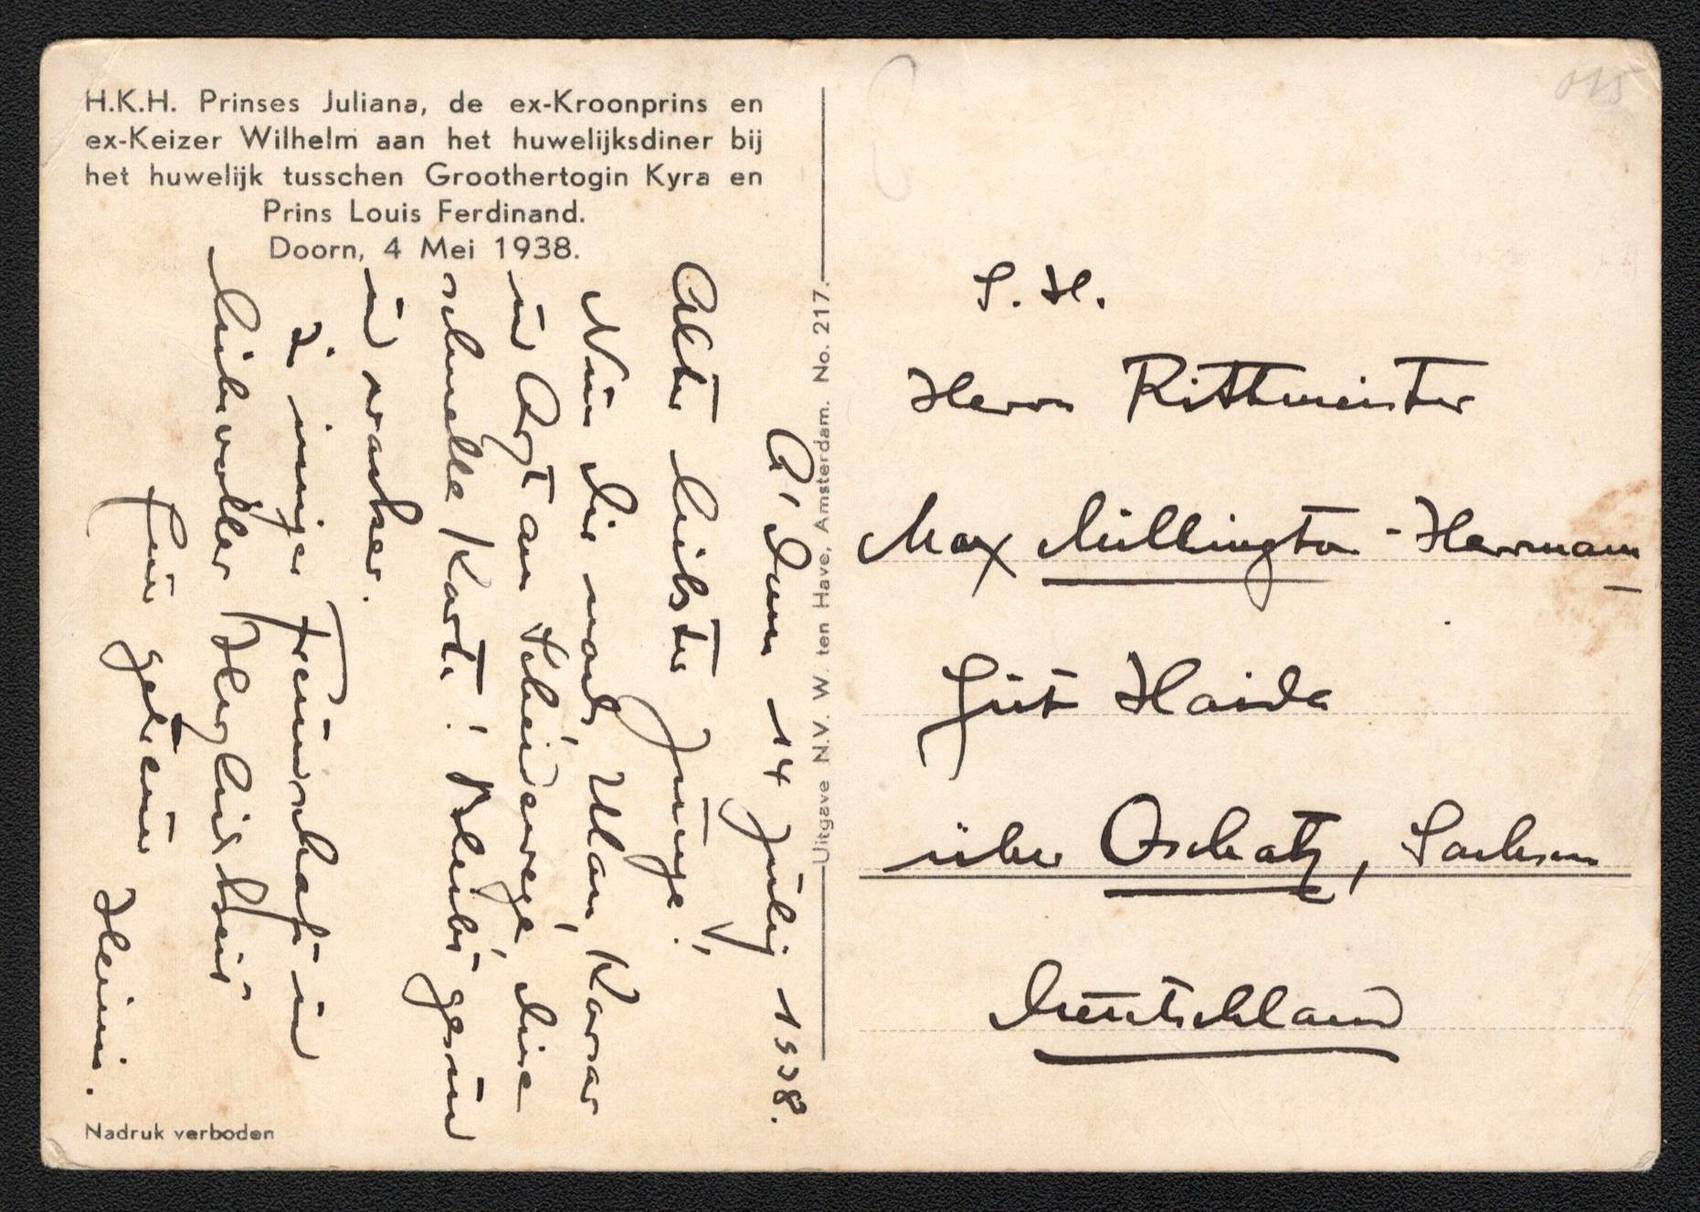 H.K.H. Prinses Juliana, de ex-Kroonprins en
ex-Keizer Wilhelm aan het huwelijksdiner bij
het huwelijk tusschen Groothertogin Kyra en
Prins Louis Ferdinand.
Doorn, 4 Mei 1938.
A'dam 14 July 1938.
Alter liebster Junge!
Nun Dir noch, Ulan, Korsar
u Arzt am Scheidewege, diese
schnelle Karte! Bleib gesund
u wacker.
In inniger Freundschaft u
liebevoller
Dein getreuer Heini.
Nadruk verboden
Uitgave N.V. W. ten Have, Amsterdam. No. 217.
S. H.
Herrn Rittmeister
Max Millington-Herrmann
Gut Haida
über Oschatz, Sachsen
Deutschland